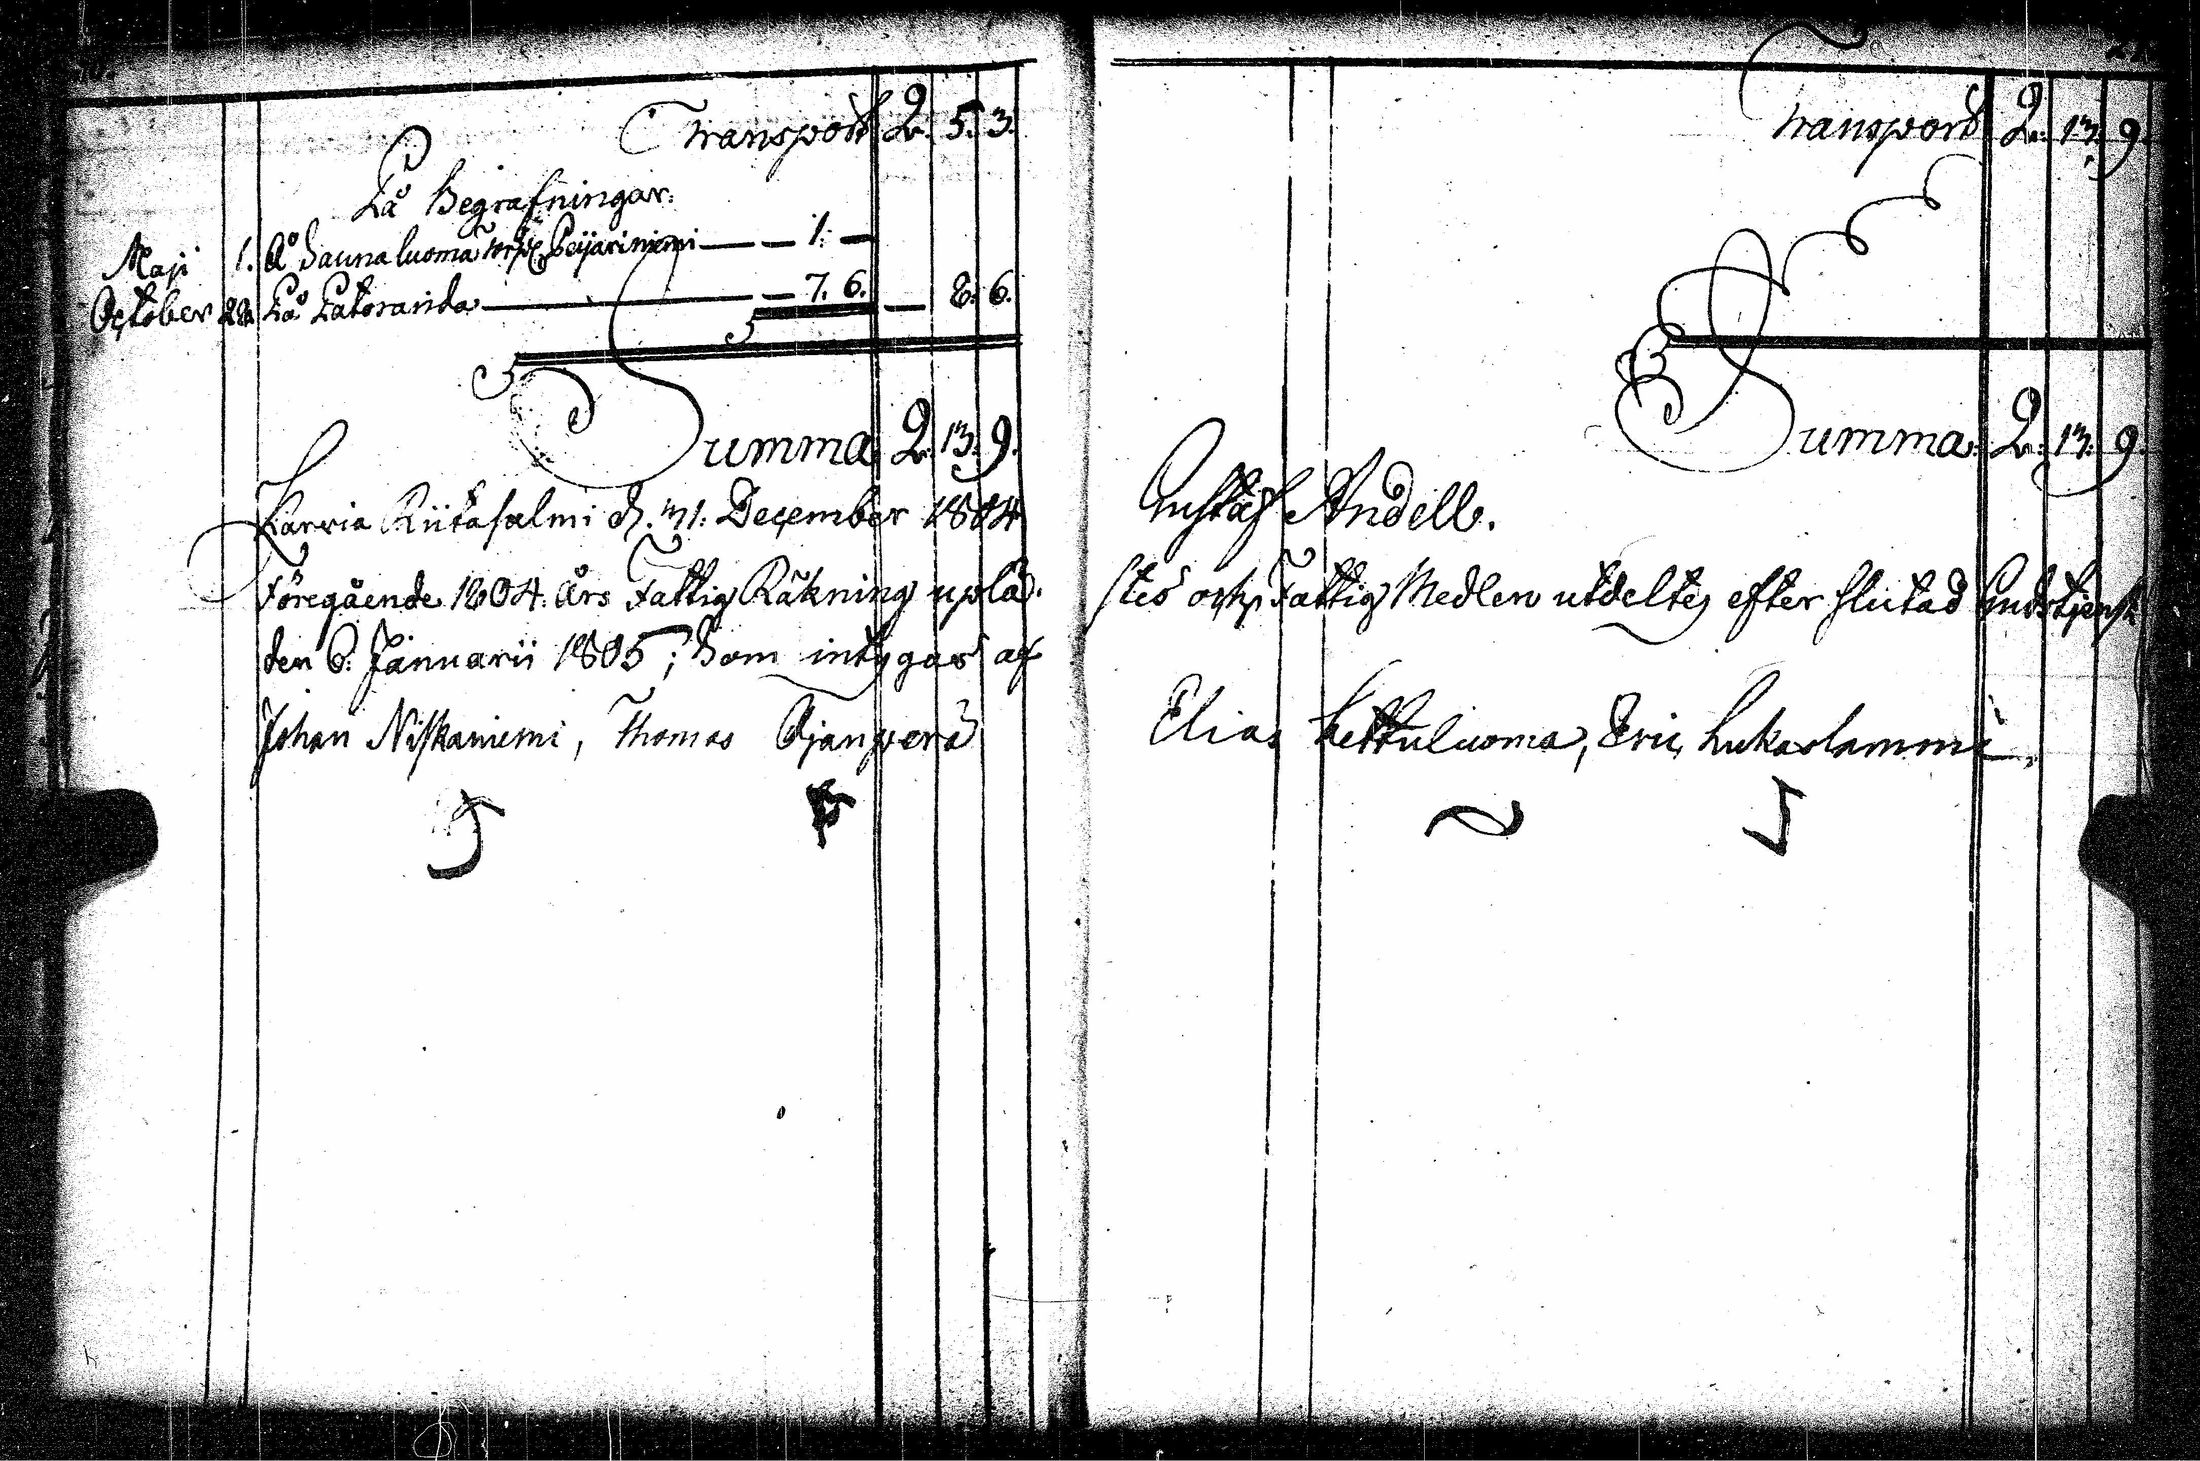 Transport 2. 5. 3.
På Begrafningar.
Maji 1. På Saunaluoma Torp Peijariniemi — — 1. —
October 28. På Latoranda — — 7. 6. — 8. 6.
Summa 2. 13. 9.
Karvia Riitasalmi d. 31. December 1804
Föregående 1804 års Fattig Räkning uplä-
den 6. Januarii 1805; som intygas af
Johan Niskaniemi, Thomas Ojanperä
21.
Transport 2. 13. 9.
Summa. 2. 13. 9.
Gustaf Andell.
stes och Fattig Medlen utdeltes efter slutad Gudstjenst
Elias Kettuluoma, Eric Lukaslammi,